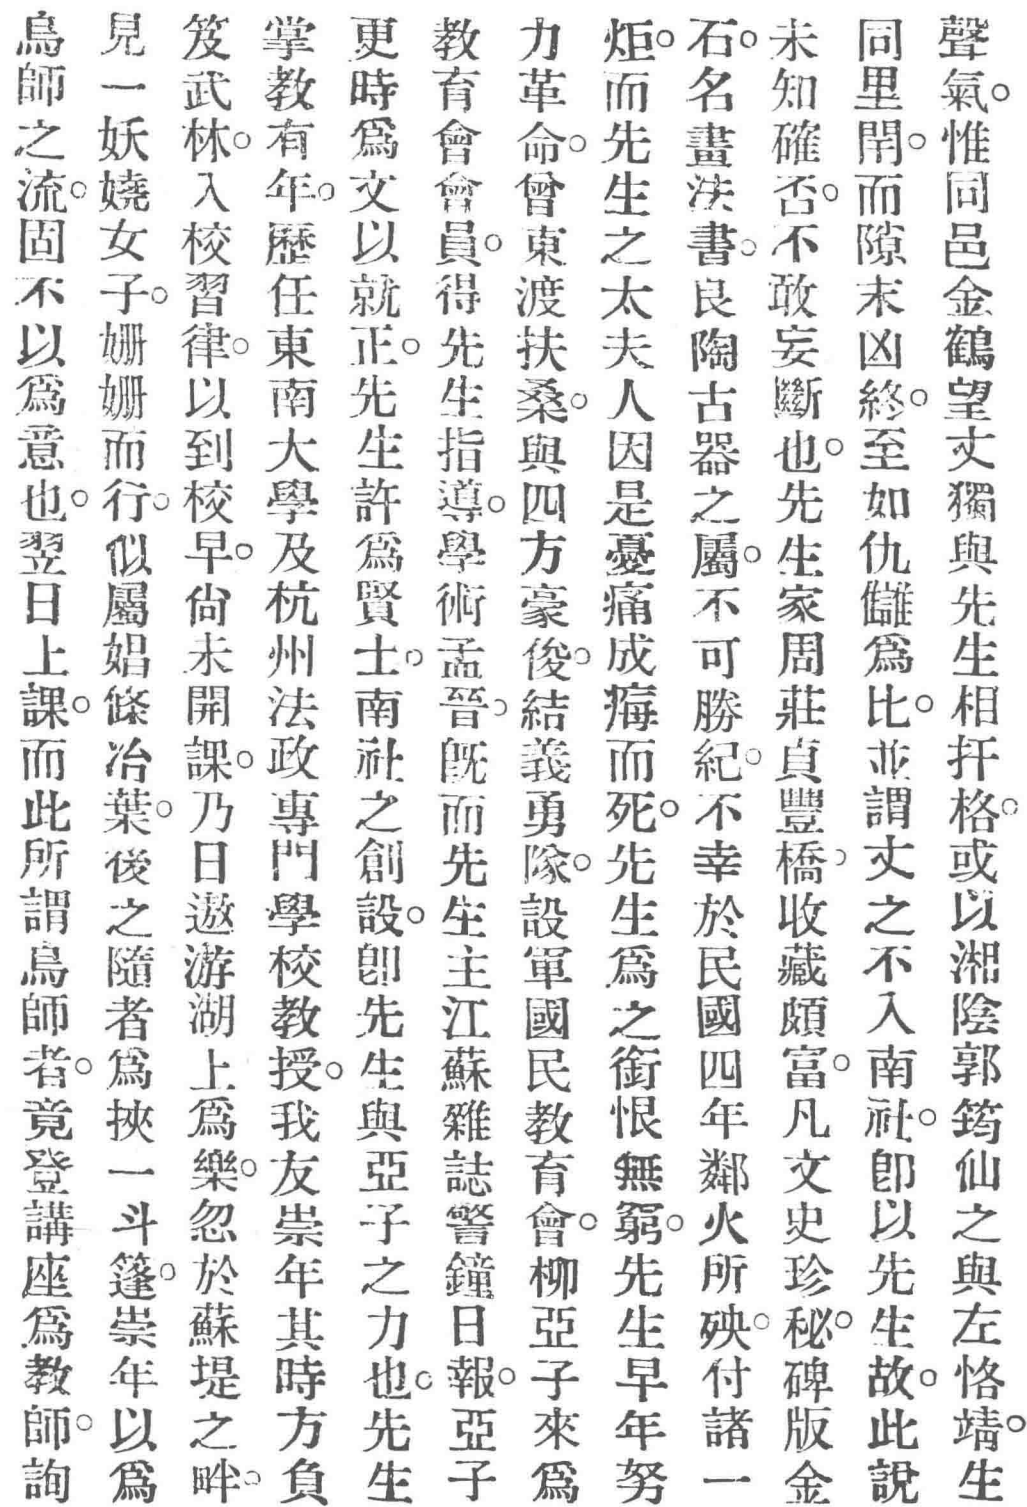 聲氣。惟同邑金鶴望丈獨與先生相扞格。或以湘陰郭筠仙之與左恪靖。生
同里閈。而隙末凶終。至如仇讎爲比。並謂丈之不入南社。卽以先生故。此說
未知確否。不敢妄斷也。先生家周莊貞豐橋。收藏頗富。凡文史珍秘。碑版金
石。名畫法書。良陶古器之屬。不可勝紀。不幸於民國四年鄰火所殃。付諸一
炬。而先生之太夫人因是憂痛成痗而死。先生爲之銜恨無窮。先生早年努
力革命。曾東渡扶桑。與四方豪俊。結義勇隊。設軍國民教育會。柳亞子來爲
教育會會員。得先生指導。學術孟晉。旣而先生主江蘇雜誌警鐘日報。亞子
更時爲文以就正。先生許爲賢士。南社之創設。卽先生與亞子之力也。先生
掌教有年。歷任東南大學及杭州法政專門學校教授。我友崇年其時方負
笈武林。入校習律。以到校早。尙未開課。乃日遨游湖上爲樂。忽於蘇堤之畔。
見一妖嬈女子。姍姍而行。似屬娼條冶葉。後之隨者爲挾一斗篷。崇年以爲
鳥師之流。固不以爲意也。翌日上課。而此所謂鳥師者。竟登講座爲教師。詢